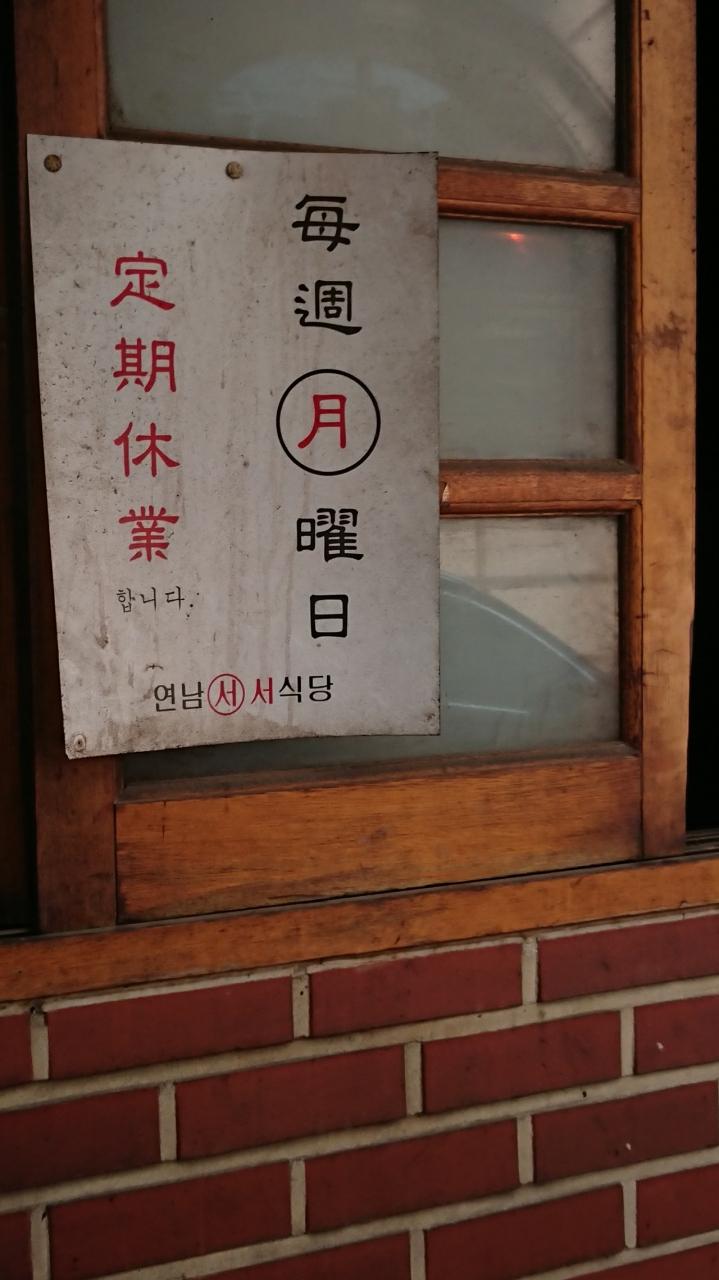 每週月曜日
定期休業
합니다.
연남서서식당